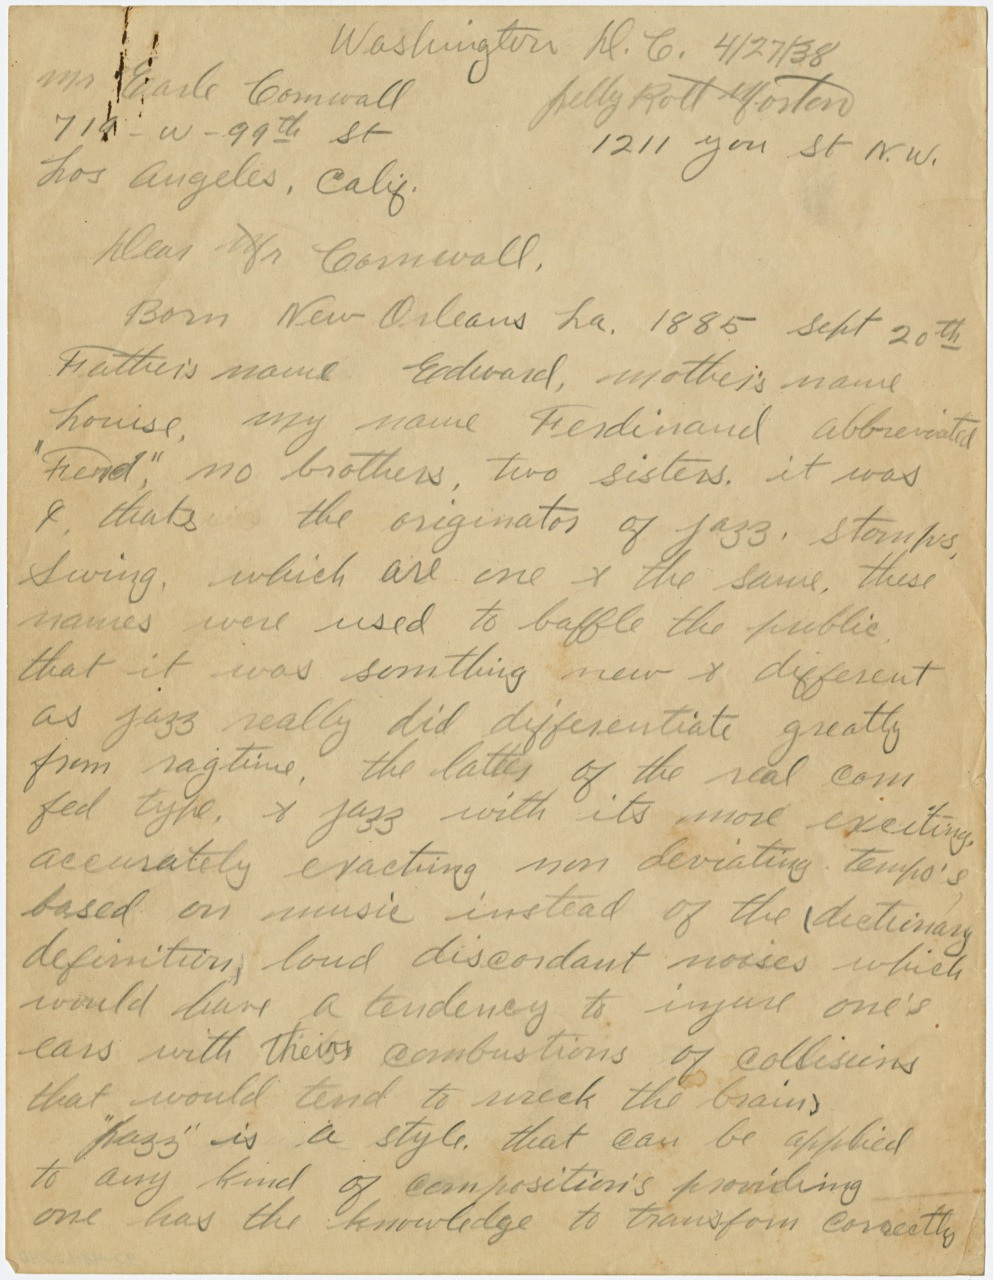 Washington D. C. 4/27/38
Mr Earle Cornwall
Jelly Roll Morton
719 - W - 99th St
1211 you St N.W.
Los Angeles, Calif.
Dear Mr Cornwall,
Born New Orleans La. 1885 Sept 20th
Father's name Edward, mother's name
Louise, my name Ferdinand abbreviated
"Ferd", no brothers, two sisters. it was
I, thats the originator of jazz, stomps,
Swing, which are one & the same, these
names were used to baffle the public,
that it was somthing new & different
as jazz really did differentiate greatly
from ragtime, the latter of the real corn
fed type, & jazz with its more exciting,
accurately exacting non deviating tempo's,
based on music instead of the (dictinary
definition) loud discordant noises which
would have a tendency to injure one's
ears with theirs combustions of collisions
that would tend to wreck the brain,
"Jazz" is a style, that can be applied
to any kind of composition's providing
one has the knowledge to transform correctly